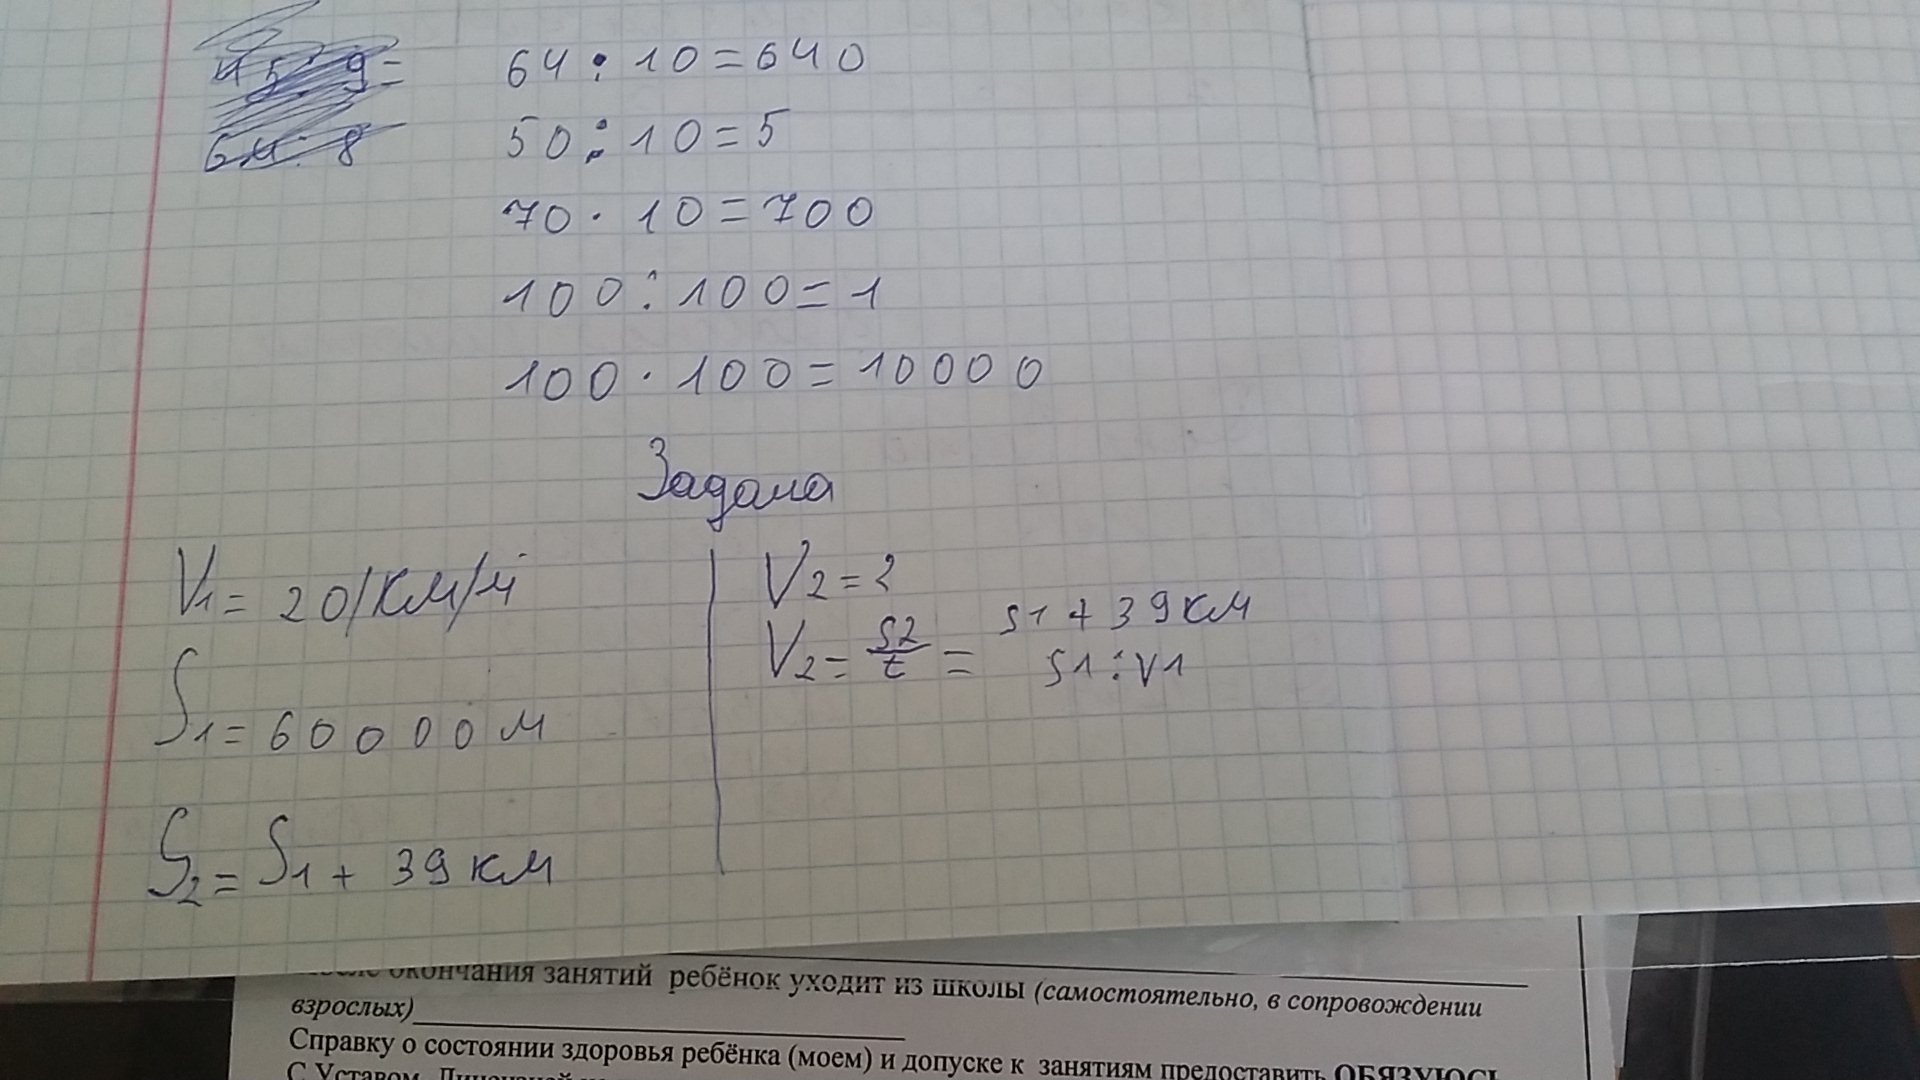 45 : 9 =
64 : 8
64 · 10 = 640
50 : 10 = 5
70 · 10 = 700
100 : 100 = 1
100 · 100 = 10000
Задача
V1 = 20/км/ч
S1 = 60000 м
S2 = S1 + 39 км
V2 = ?
V2 = S2/t = S1 + 39 км
S1 : V1
после окончания занятий ребёнок уходит из школы (самостоятельно, в сопровождении
взрослых)
Справку о состоянии здоровья ребёнка (моем) и допуске к занятиям предоставить ОБЯЗУЮСЬ
С Уставом,